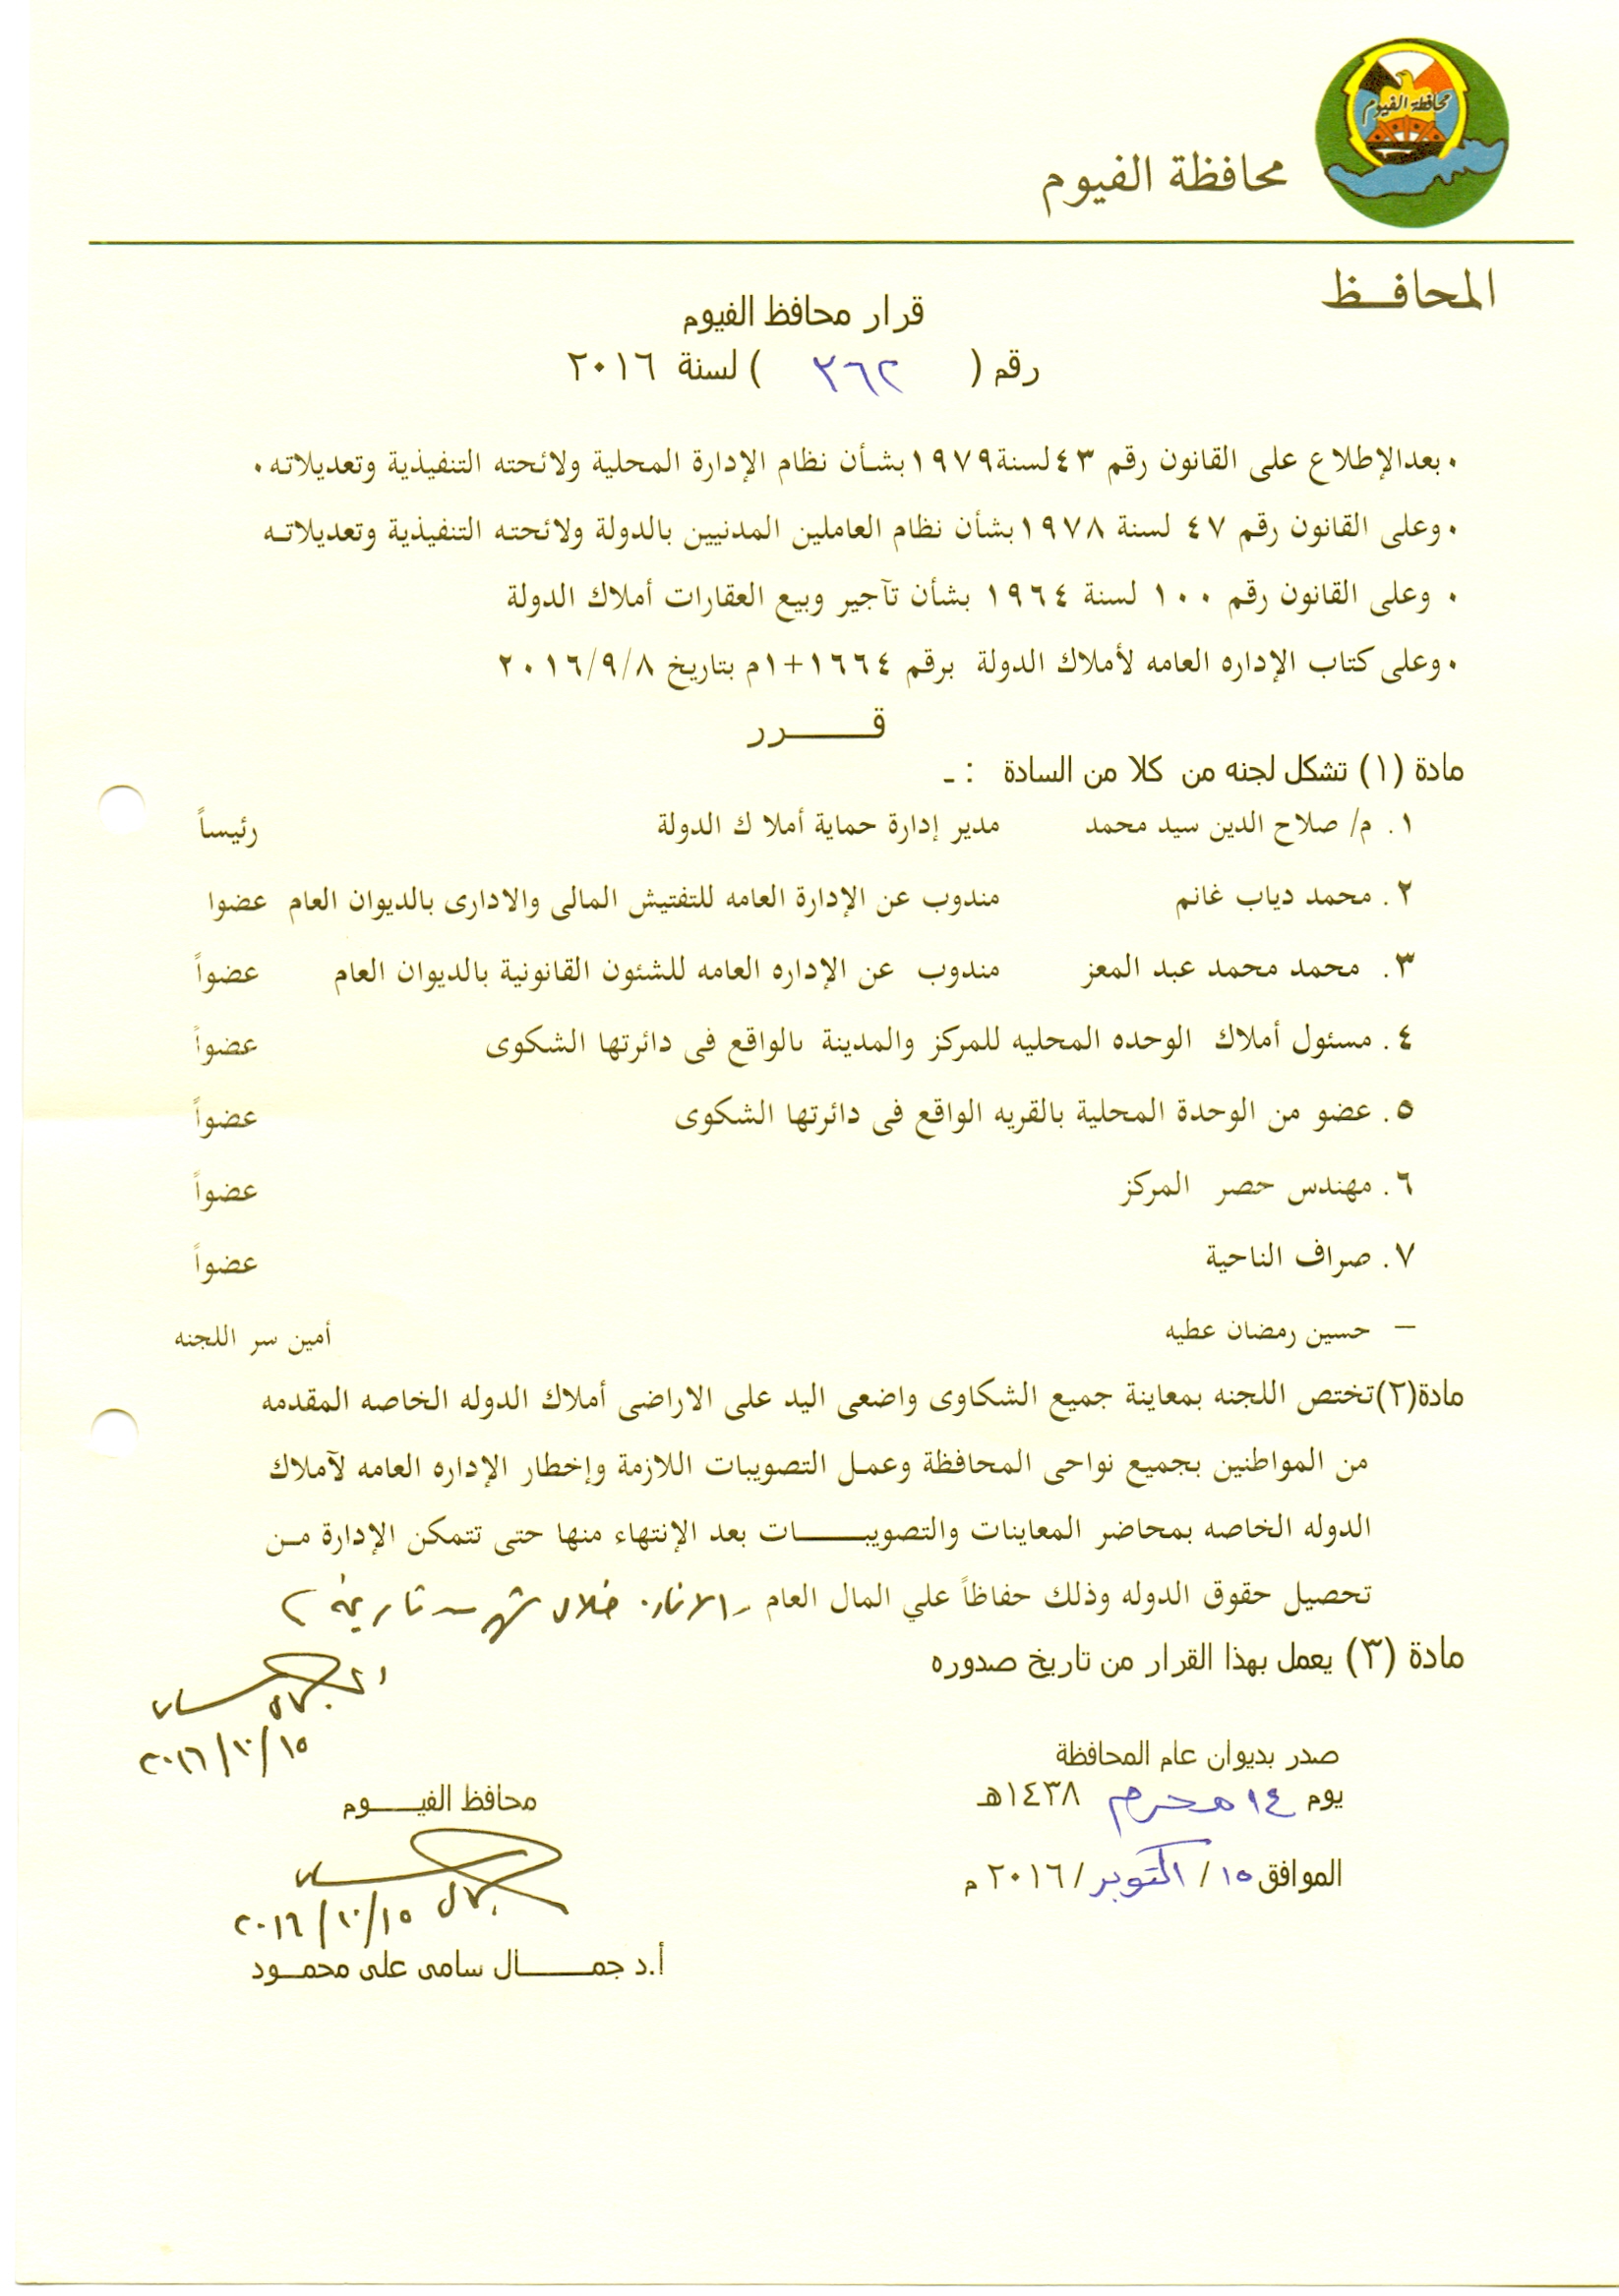 محافظة الفيوم
محافظة الفيوم
المحافــظ
قرار محافظ الفيوم
رقم ( ٣٦٢ ) لسنة ٢٠١٦
٠ بعدالإطلاع على القانون رقم ٤٣لسنة١٩٧٩بشأن نظام الإدارة المحلية ولائحته التنفيذية وتعديلاته٠
٠ وعلى القانون رقم ٤٧ لسنة ١٩٧٨بشأن نظام العاملين المدنيين بالدولة ولائحته التنفيذية وتعديلاته
٠ وعلى القانون رقم ١٠٠ لسنة ١٩٦٤ بشأن تآجير وبيع العقارات أملاك الدولة
٠ وعلى كتاب الإداره العامه لأملاك الدولة برقم ١٦٦٤+١م بتاريخ ٢٠١٦/٩/٨
قـــــرر
مادة (١) تشكل لجنه من كلا من السادة : ـ
١. م/ صلاح الدين سيد محمد مدير إدارة حماية أملا ك الدولة رئيساً
٢. محمد دياب غانم مندوب عن الإدارة العامه للتفتيش المالى والادارى بالديوان العام عضوا
٣. محمد محمد عبد المعز مندوب عن الإداره العامه للشئون القانونية بالديوان العام عضواً
٤. مسئول أملاك الوحده المحليه للمركز والمدينة بالواقع فى دائرتها الشكوى عضواً
٥. عضو من الوحدة المحلية بالقريه الواقع فى دائرتها الشكوى عضواً
٦. مهندس حصر المركز عضواً
٧. صراف الناحية عضواً
– حسين رمضان عطيه أمين سر اللجنه
مادة(٢)تختص اللجنه بمعاينة جميع الشكاوى واضعى اليد على الاراضى أملاك الدوله الخاصه المقدمه
من المواطنين بجميع نواحى المحافظة وعمل التصويبات اللازمة وإخطار الإداره العامه لآملاك
الدوله الخاصه بمحاضر المعاينات والتصويبـــــات بعد الإنتهاء منها حتى تتمكن الإدارة مـن
تحصيل حقوق الدوله وذلك حفاظاً علي المال العام خلال شهر تاريخه
مادة (٣) يعمل بهذا القرار من تاريخ صدوره
٢٠١٦/١٠/١٥
صدر بديوان عام المحافظة
يوم ١٤ محرم ١٤٣٨هـ
الموافق ١٥ / اكتوبر / ٢٠١٦ م
محافظ الفيـــوم
جمال سامي
٢٠١٦/١٠/١٥
أ.د جمـــــال سامى على محمـــود